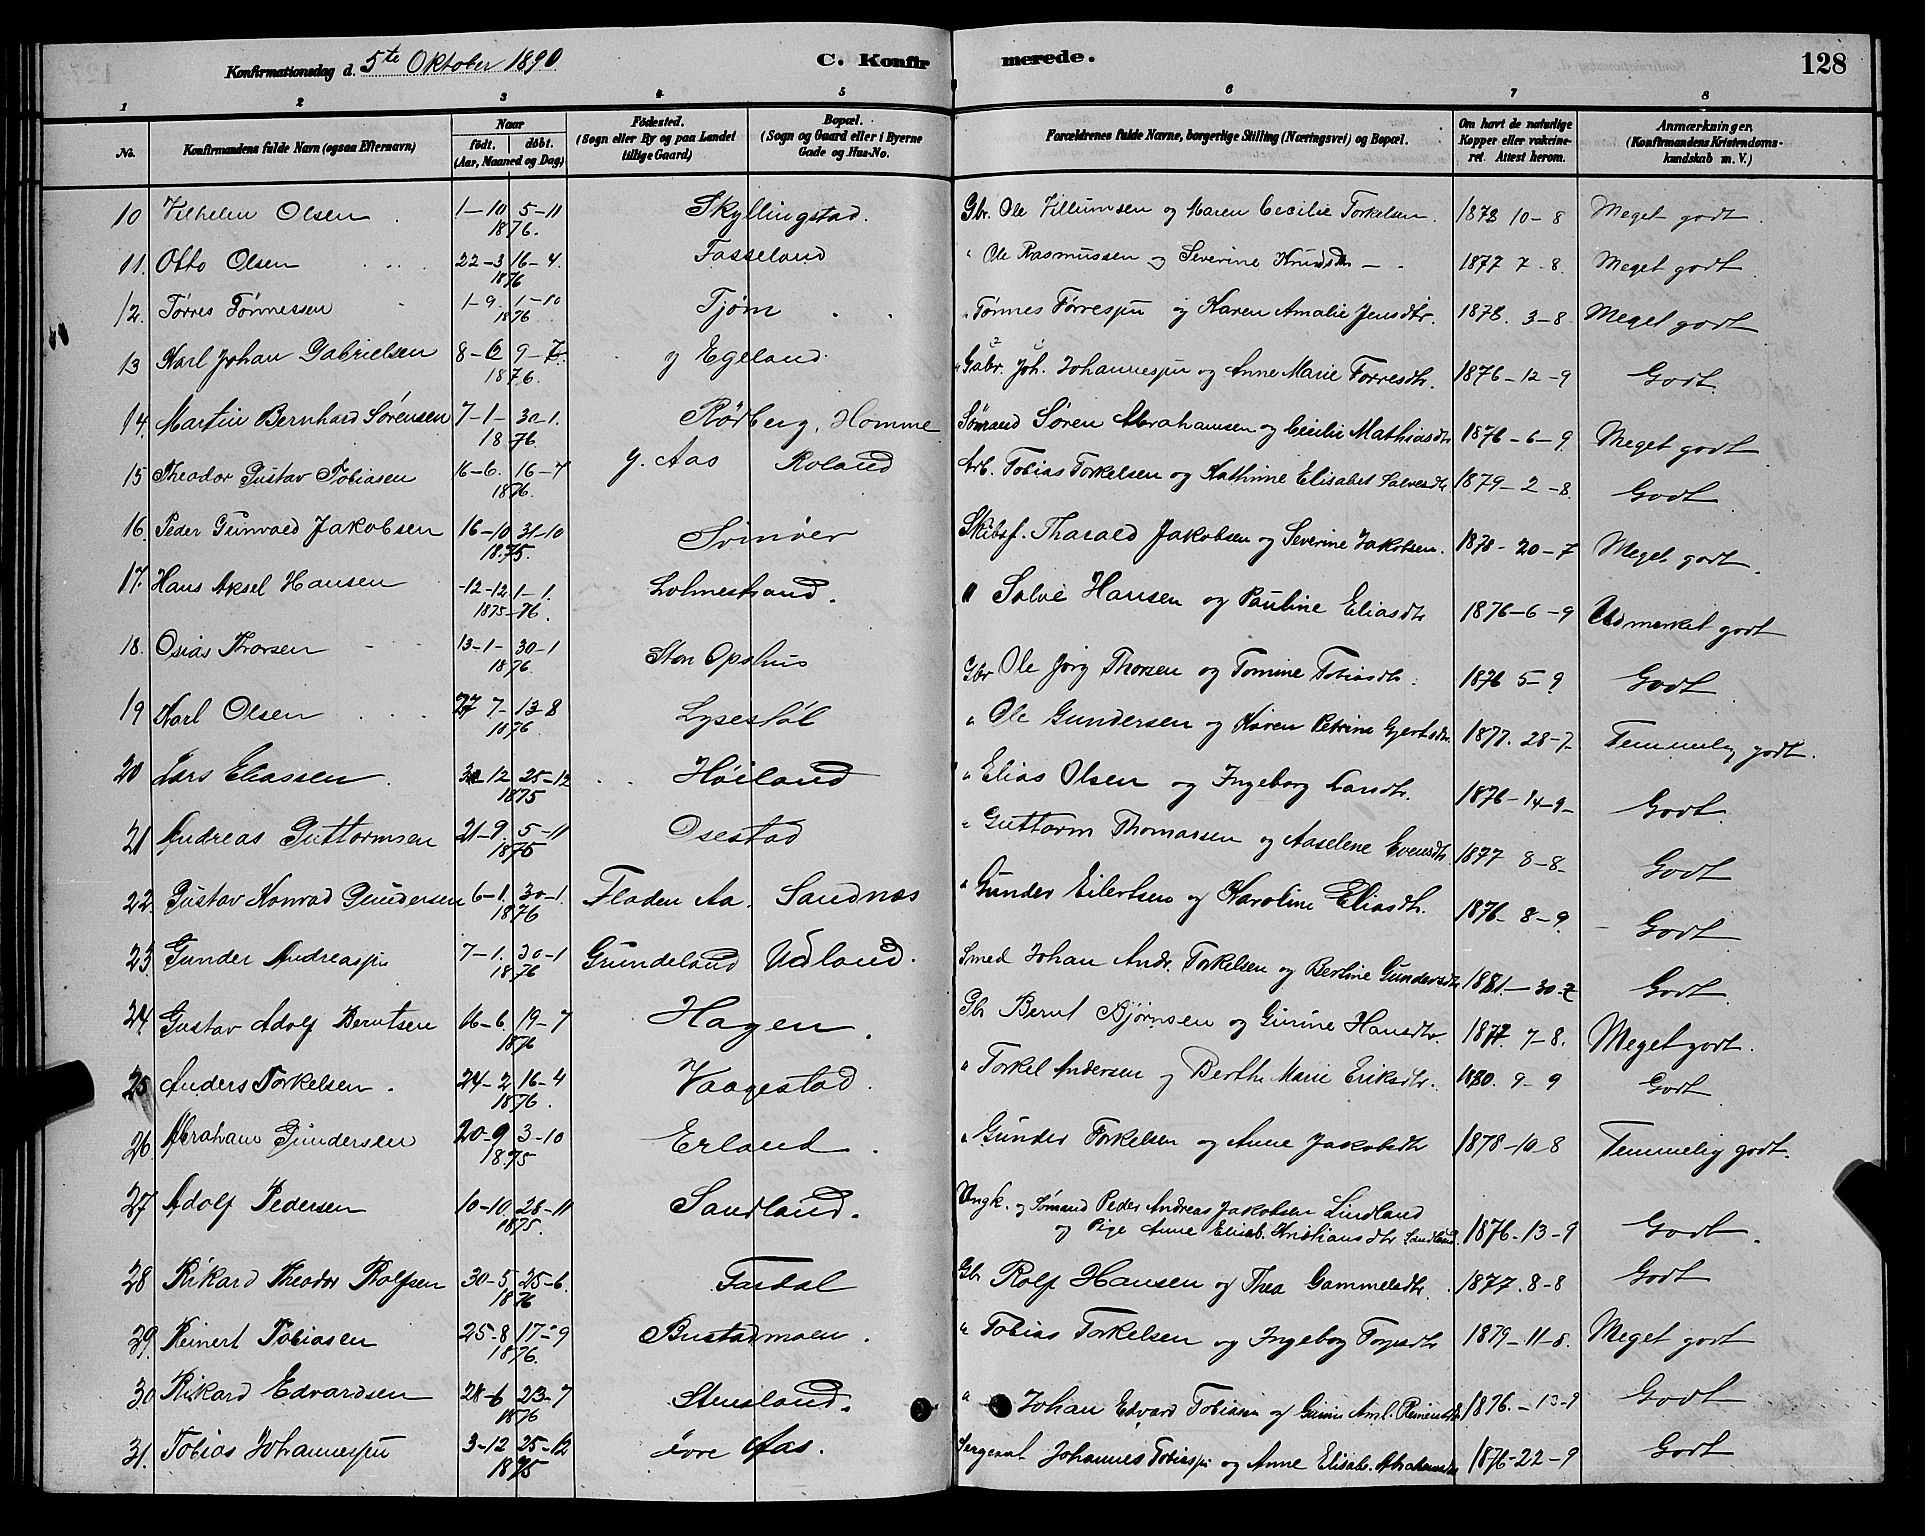 Konfirmationsdag d. 5te Oktober 1890 C. Konfirmerede. 128
1 2 3 4 5 6 7 8
No. Konfirmandens fulde Navn (ogsaa Efternavn) Naar født. døbt. (Aar, Maaned og Dag) Fødested. (Sogn eller By og paa Landet tillige Gaard) Bopæl. (Sogn og Gaard eller i Byerne Gade og Hus-No. Forældrenes fulde Navne, borgerlige Stilling (Næringsvei) og Bopæl. Om havt de naturlige Kopper eller vakcineret. Attest herom. Anmærkninger (Konfirmandens Kristendomskundskab m. V.)
10 Vilhelm Olsen 1-10 5-11 1876. Skyllingstad. Gbr. Ole Villumsen og Maren Cecilie Torkelsen. 1878 10-8 Meget godt
11. Otto Olsen 22-3 16-4. 1876 Fasseland " Ole Rasmussen og Severine Knudsdtr 1877 7-8. Meget godt
12. Tørres Tønnessen 1-9. 1-10 1876. Tjøm " Tønnes Tørresjn og Karen Amalie Jensdtr. 1878. 3-8. Meget godt
13 Karl Johan Gabrielsen 8-6 9-7. 1876. y Egeland. " Gabr. Joh. Johannesjn og Anne Marie Torresdtr. 1876-12-9 Godt
14. Martin Bernhard Sørensen 7-1- 30-1. 1876 Rødberg, Homme Sømand Søren Abrahamsen og Cecilie Mathiasdtr 1876-6-9 Meget godt
15 Theodor Gustav Tobiasen 16-6. 16-7 1876. y. Aas Roland Arb. Tobias Torkelsen og Kathrine Elisabet Salvesdtr 1879-2-8. Godt
16. Peder Gunvald Jakobsen 16-10 31-10 1875. Svinøer Skibsf. Tharald Jakobsen og Severine Jakobsen. 1878-20-7 Meget godt.
17. Hans Aksel Hansen 12-12 1-1. 1875-76. Holmestrand. " Salve Hansen og Pauline Eliasdtr 1876-6-9 Udmerket godt
18. Osias Thorsen 13-1- 30-1 1876. Sten Opshus Gbr Ole Jørg Thorsen og Tomine Tobiasdtr. 1876 5-9 Godt
19 Karl Olsen 27 7- 13-8 1876. Lysestøl " Ole Gundersen og Karen Petrine Gjertsdtr. 1877. 28-7- Temmelig godt.
20 Lars Eliassen. 12 25-12 1875 Høiland " Elias Olsen og Ingeborg Larsdtr. 1876-14-9- Godt
21 Andreas Guttormsen 21-9. 5-11 1875 Osestad " Guttorm Thomassen og Aaselene Evensdtr 1877 8-8- Godt
22. Gustav Konrad Gundersen 6-1. 30-1. 1876 Fladen Aa. Sandnes " Gunder Eilertsen og Karoline Eliasdtr. 1876-8-9. Godt
23 Gunder Andreasjn 7-1. 30-1 1876 Grundeland Udland. Smed Johan Andr. Torkelsen og Bertine Gundersdtr 1881.-30-7 Godt
24. Gustav Adolf Berntsen 16-6. 19-7 1876 Hagen. Gb Bernt Bjørnsen og Gurine Hansdtr. 1877. 7-8. Meget godt.
25 Anders Torkelsen. 24-2 16-4 1876. Vaagestad. " Torkel Andersen og Berth Marie Eriksdtr. 1880. 9-9 Godt
26. Abraham Gundersen 20-9 3-10 1875 Erland. " Gunder Torkelsen og Anne Jakobsdtr 1878-10-8 Temmelig godt.
27 Adolf Pedersen 10-10 28-11 1875. Sandland. Ungk. og Sømand Peder Andreas Jakobsen Lindland
og Pige Anne Elisab. Kristiansdtr Sandland. 1876-13-9 Godt.
28 Rikard Theodor Rolfsen 30-5 25-6. 1876 Fardal Gb Rolf Hansen og Thea Gammelsdtr. 1877. 8-8 Godt
29. Reinert Tobiasen 25-8 17-9 1876. Bustadmoen. " Tobias Torkelsen og Ingeborg 1879-11-8. Meget godt
30 Rikard Edvardsen 28-6 23-7 1876 Stusland. " Johan Edvard Tobiasen og 1876.-13-9 Godt
31. Tobias Johannesjn 3-12 25-12 1875 øvre Aas. Sergeant Johannes Tobiasjn og Anne Elisab. Abrahamsdtr 1876-22-9 Godt